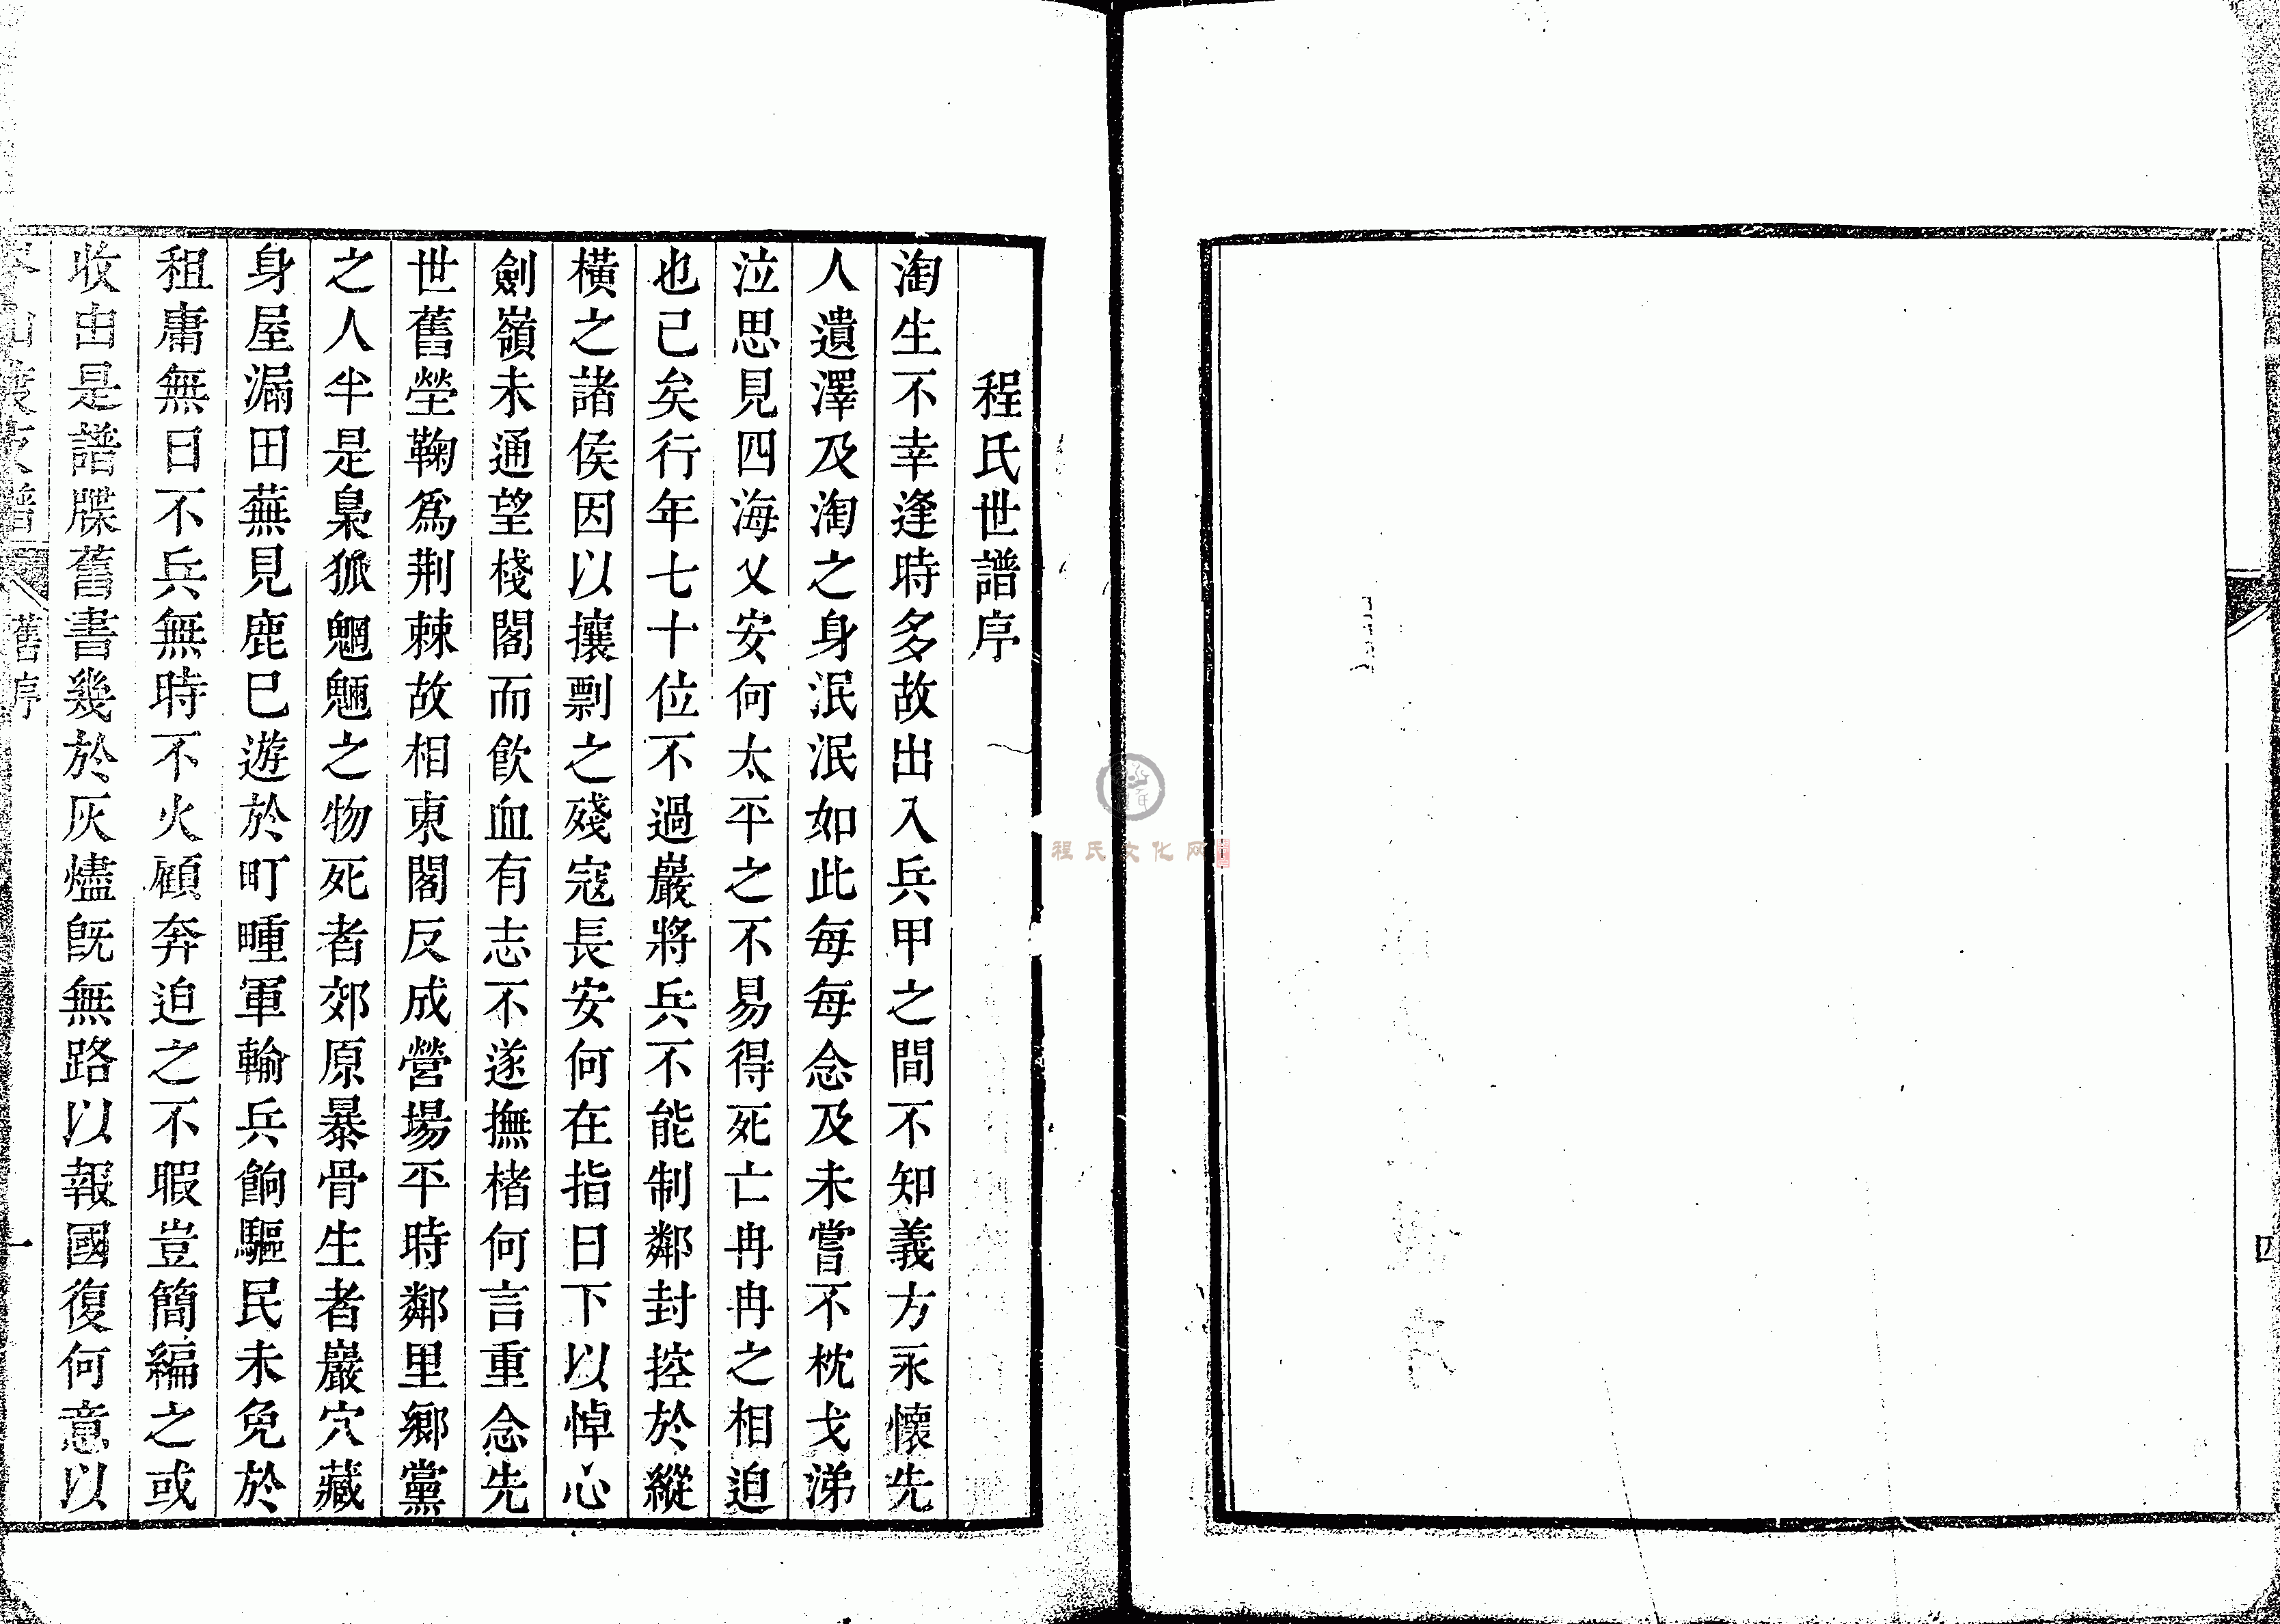 四
程氏世譜序
淘生不幸逢時多故出入兵甲之間不知義方永懷先
人遺澤及淘之身泯泯如此每每念及未嘗不枕戈涕
泣思見四海乂安何太平之不易得死亡冉冉之相迫
也已矣行年七十位不過巖將兵不能制鄰封控於縱
橫之諸侯因以攘剽之殘寇長安何在指日下以悼心
劍嶺未通望棧閣而飲血有志不遂撫楮何言重念先
世舊塋鞠爲荆棘故相東閣反成營場平時鄰里鄉黨
之人半是梟狐魍魎之物死者郊原暴骨生者巖穴藏
身屋漏田蕪見鹿巳遊於町畽軍輸兵餉驅民未免於
租庸無日不兵無時不火顧奔迫之不暇豈簡編之或
收由是譜牒舊書幾於灰燼旣無路以報國復何意以
舊序
一
程氏文化网